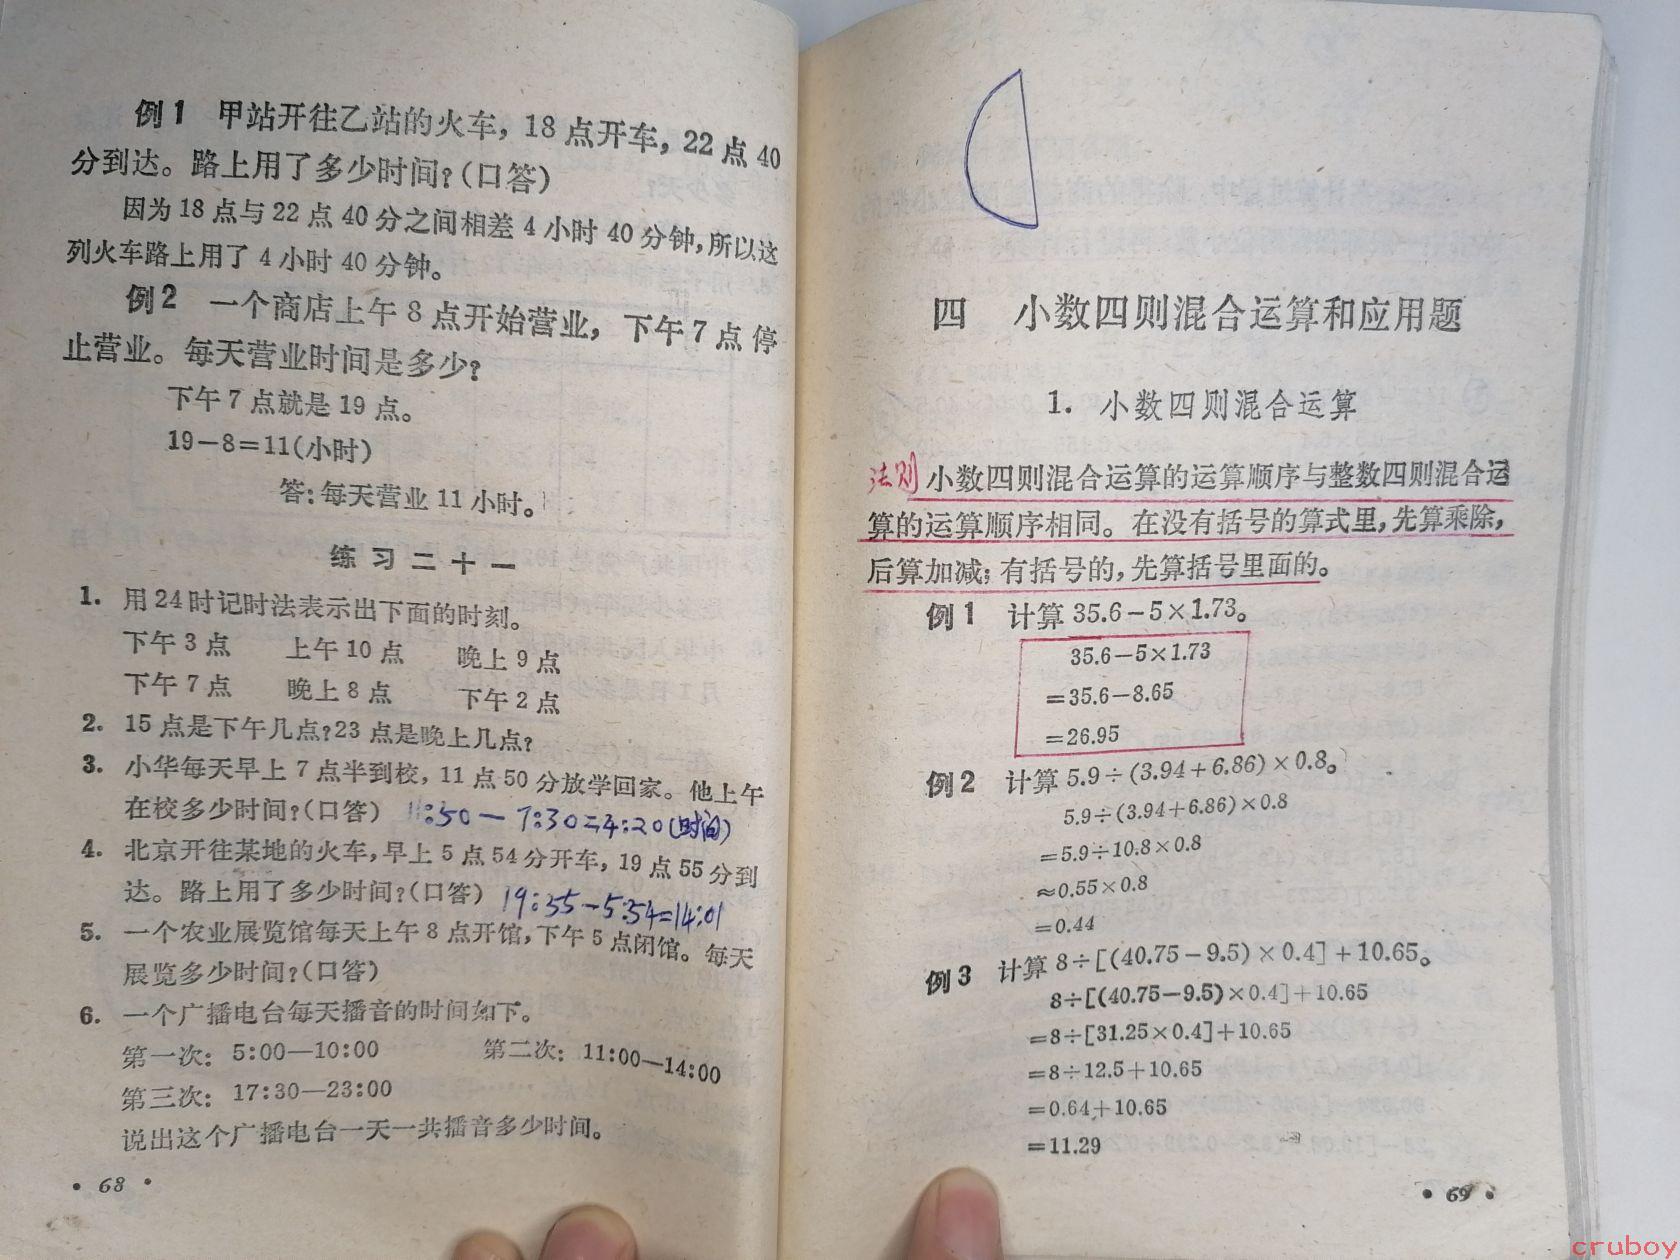 例1 甲站开往乙站的火车，18点开车，22点40
分到达。路上用了多少时间？(口答)
因为18点与22点40分之间相差4小时40分钟，所以这
列火车路上用了4小时40分钟。
例2 一个商店上午8点开始营业，下午7点停
止营业。每天营业时间是多少？
下午7点就是19点。
19－8＝11(小时)
答：每天营业11小时。
练习二十一
1. 用24时记时法表示出下面的时刻。
下午3点 上午10点 晚上9点
下午7点 晚上8点 下午2点
2. 15点是下午几点？23点是晚上几点？
3. 小华每天早上7点半到校，11点50分放学回家。他上午
在校多少时间？(口答) 11:50－7:30=4:20(时间)
4. 北京开往某地的火车，早上5点54分开车，19点55分到
达。路上用了多少时间？(口答) 19:55－5:54=14:01
5. 一个农业展览馆每天上午8点开馆，下午5点闭馆。每天
展览多少时间？(口答)
6. 一个广播电台每天播音的时间如下。
第一次：5:00—10:00 第二次：11:00—14:00
第三次：17:30—23:00
说出这个广播电台一天一共播音多少时间。
• 68 •
四 小数四则混合运算和应用题
1. 小数四则混合运算
法则 小数四则混合运算的运算顺序与整数四则混合运
算的运算顺序相同。在没有括号的算式里，先算乘除，
后算加减；有括号的，先算括号里面的。
例1 计算35.6－5×1.73。
35.6－5×1.73
＝35.6－8.65
＝26.95
例2 计算5.9÷(3.94＋6.86)×0.8。
5.9÷(3.94＋6.86)×0.8
＝5.9÷10.8×0.8
≈0.55×0.8
＝0.44
例3 计算8÷[(40.75－9.5)×0.4]＋10.65。
8÷[(40.75－9.5)×0.4]＋10.65
＝8÷[31.25×0.4]＋10.65
＝8÷12.5＋10.65
＝0.64＋10.65
＝11.29
• 69 •
cruboy